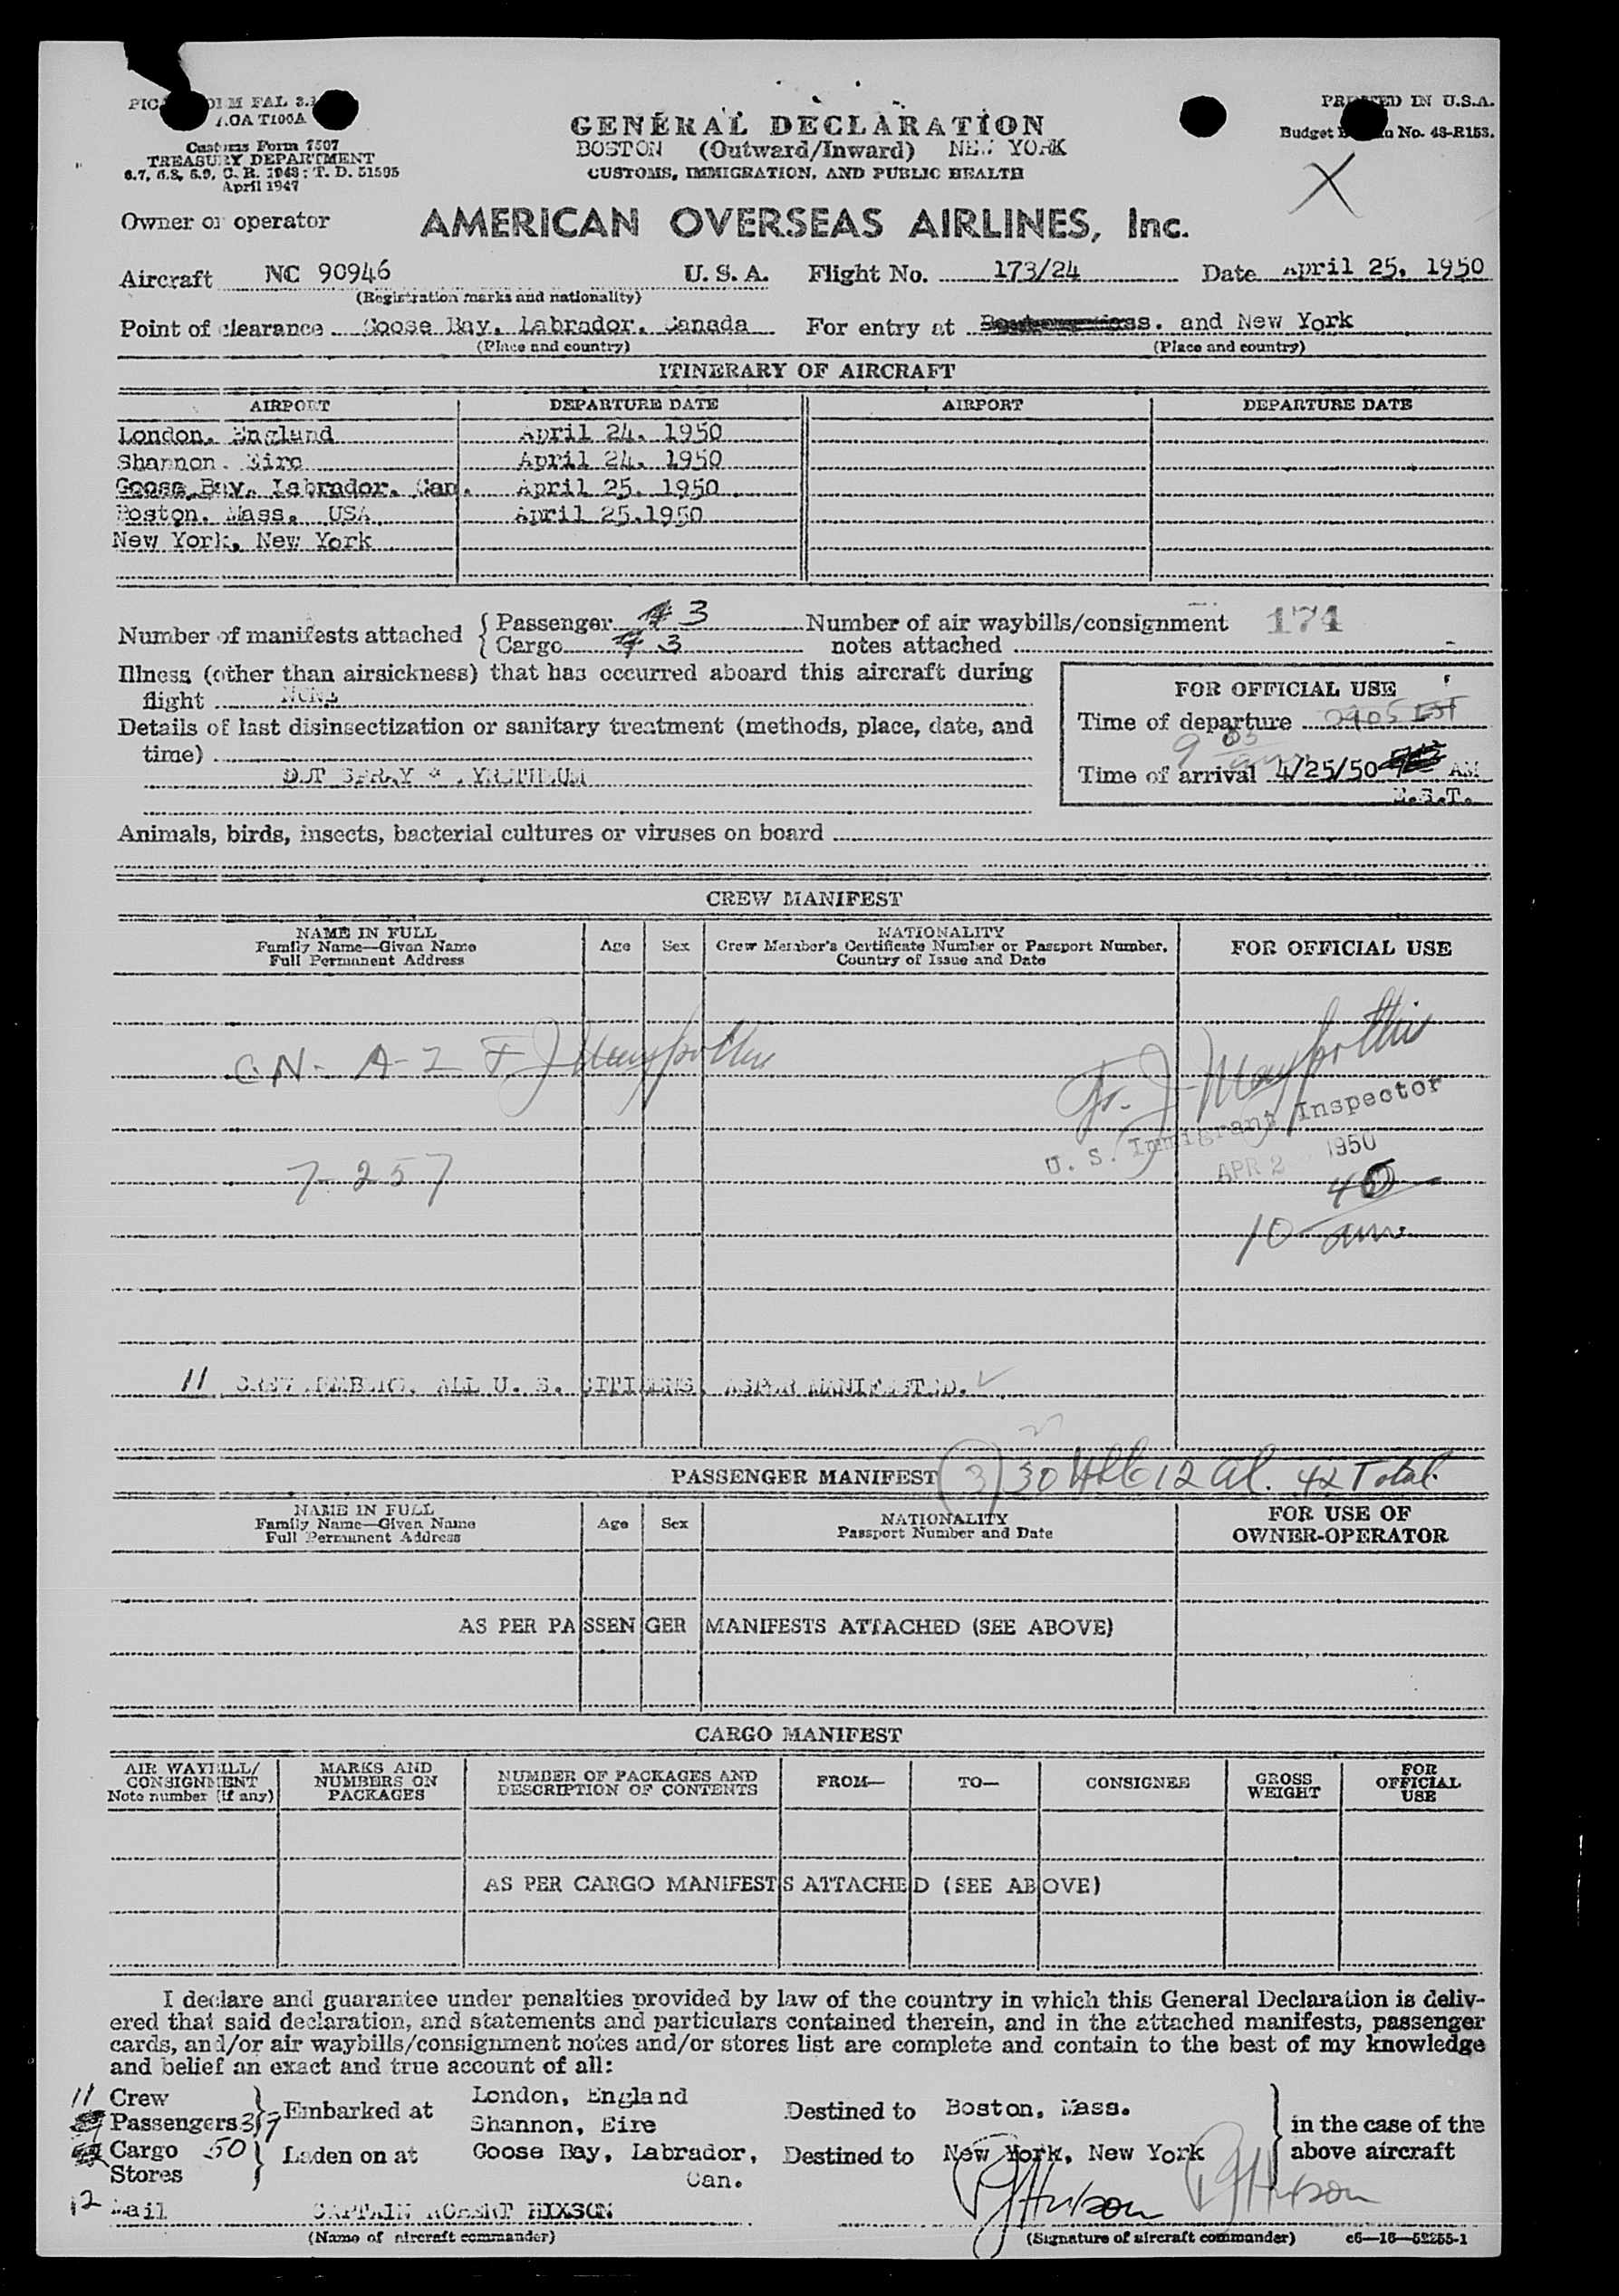 FAL
PRINTED IN U.S.A.
T100A
Customs Form 7507
TREASURY DEPARTMENT
6.7, 6.8, 6.9, C. R. 1943; T. D. 51595
April 1947
GENERAL DECLARATION
BOSTON (Outward/Inward) NEW YORK
CUSTOMS, IMMIGRATION, AND PUBLIC HEALTH
Budget No. 43-R153.
X
Owner or operator AMERICAN OVERSEAS AIRLINES, Inc.
Aircraft NC 90946 U. S. A. Flight No. 173/24 Date April 25, 1950
(Registration marks and nationality)
Point of clearance Goose Bay, Labrador, Canada For entry at and New York
(Place and country) (Place and country)
ITINERARY OF AIRCRAFT
AIRPORT DEPARTURE DATE AIRPORT DEPARTURE DATE
London, England April 24, 1950
Shannon, Eire April 24, 1950
Goose Bay, Labrador, Can. April 25, 1950
Boston, Mass. USA April 25,1950
New York, New York
Number of manifests attached { Passenger 3 Number of air waybills/consignment 174
{ Cargo 3 notes attached -
Illness (other than airsickness) that has occurred aboard this aircraft during
flight NONE
Details of last disinsectization or sanitary treatment (methods, place, date, and
time)
DDT SPRAY & PYRETHEUM
FOR OFFICIAL USE
Time of departure 0905 EST
9 03 am
Time of arrival 4/25/50 AM
E.S.T.
Animals, birds, insects, bacterial cultures or viruses on board
CREW MANIFEST
NAME IN FULL
Family Name—Given Name
Full Permanent Address
Age Sex
NATIONALITY
Crew Member's Certificate Number or Passport Number,
Country of Issue and Date
FOR OFFICIAL USE
C.N.- A-2 F. J.
F. J.
U. S. Immigrant Inspector
APR 2 1950
7-257
10 40 am.
11 CREW MEMBERS, ALL U. S. CITIZENS, ASPER MANIFESTED. ✓
PASSENGER MANIFEST (3) 30 12 al. 42 Total
NAME IN FULL
Family Name—Given Name
Full Permanent Address
Age Sex
NATIONALITY
Passport Number and Date
FOR USE OF
OWNER-OPERATOR
AS PER PASSENGER MANIFESTS ATTACHED (SEE ABOVE)
CARGO MANIFEST
AIR WAYBILL/
CONSIGNMENT
Note number (if any)
MARKS AND
NUMBERS ON
PACKAGES
NUMBER OF PACKAGES AND
DESCRIPTION OF CONTENTS
FROM—
TO—
CONSIGNEE
GROSS
WEIGHT
FOR
OFFICIAL
USE
AS PER CARGO MANIFESTS ATTACHED (SEE ABOVE)
I declare and guarantee under penalties provided by law of the country in which this General Declaration is deliv-
ered that said declaration, and statements and particulars contained therein, and in the attached manifests, passenger
cards, and/or air waybills/consignment notes and/or stores list are complete and contain to the best of my knowledge
and belief an exact and true account of all:
11 Crew London, England
Passengers 39 Embarked at Shannon, Eire Destined to Boston, Mass. in the case of the
Cargo 50 Laden on at Goose Bay, Labrador, Destined to New York, New York above aircraft
Stores Can.
12 Mail CAPTAIN ROBERT HIXSON
(Name of aircraft commander) (Signature of aircraft commander) c6—16—52255-1